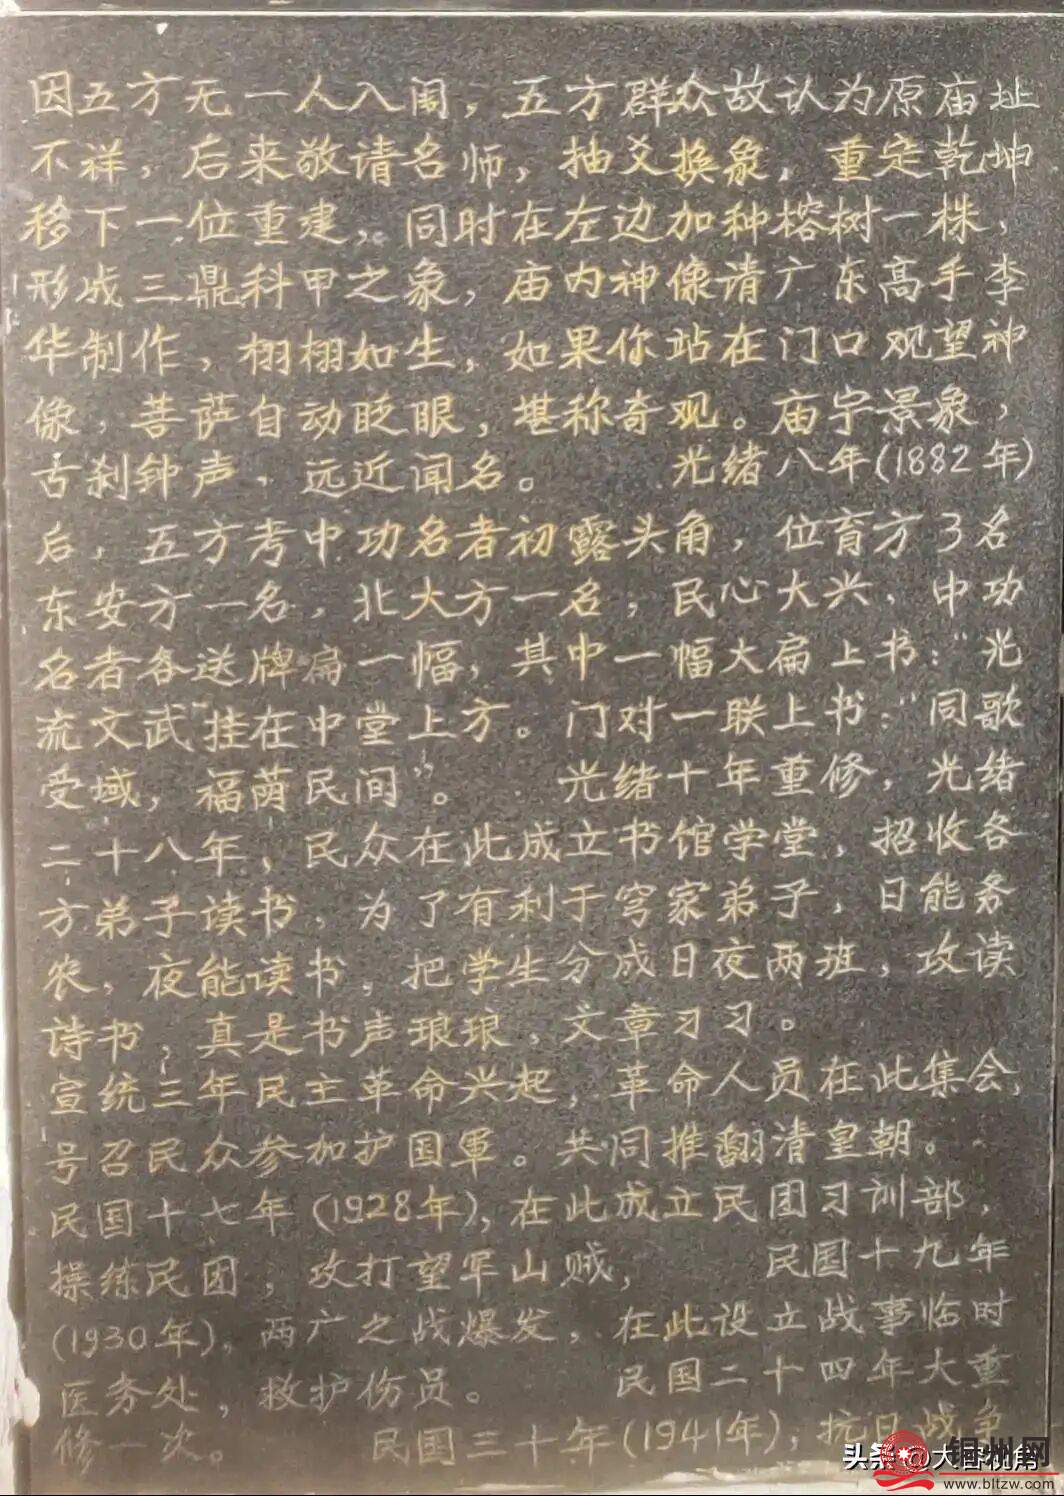 因五方无一人入闱，五方群众故认为原庙址
不祥，后来敬请名师，抽爻换象，重定乾坤
移下一位重建，同时在左边加种榕树一株，
形成三鼎科甲之象，庙内神像请广东高手李
华制作，栩栩如生，如果你站在门口观望神
像，菩萨自动眨眼，堪称奇观。庙宇景象，
古刹钟声，远近闻名。 光绪八年(1882年)
后，五方考中功名者初露头角，位育方3名
东安方一名，北大方一名，民心大兴，中功
名者各送牌扁一幅，其中一幅大扁上书："光
流文武"挂在中堂上方。门对一联上书："同歌
受域，福荫民间"。 光绪十年重修，光绪
二十八年，民众在此成立书馆学堂，招收各
方弟子读书，为了有利于穷家弟子，日能务
农，夜能读书，把学生分成日夜两班，攻读
诗书，真是书声琅琅，文章习习。
宣统三年民主革命兴起，革命人员在此集会，
号召民众参加护国軍。共同推翻清皇朝。
民国十七年(1928年)，在此成立民团习训部，
操练民团，攻打望军山贼， 民国十九年
(1930年)，两广之战爆发，在此设立战事临时
医务处，救护伤员。 民国二十四年大重
修一次。 民国三十年(1941年)，抗日战争
头条@大容视角
www.bltzw.com